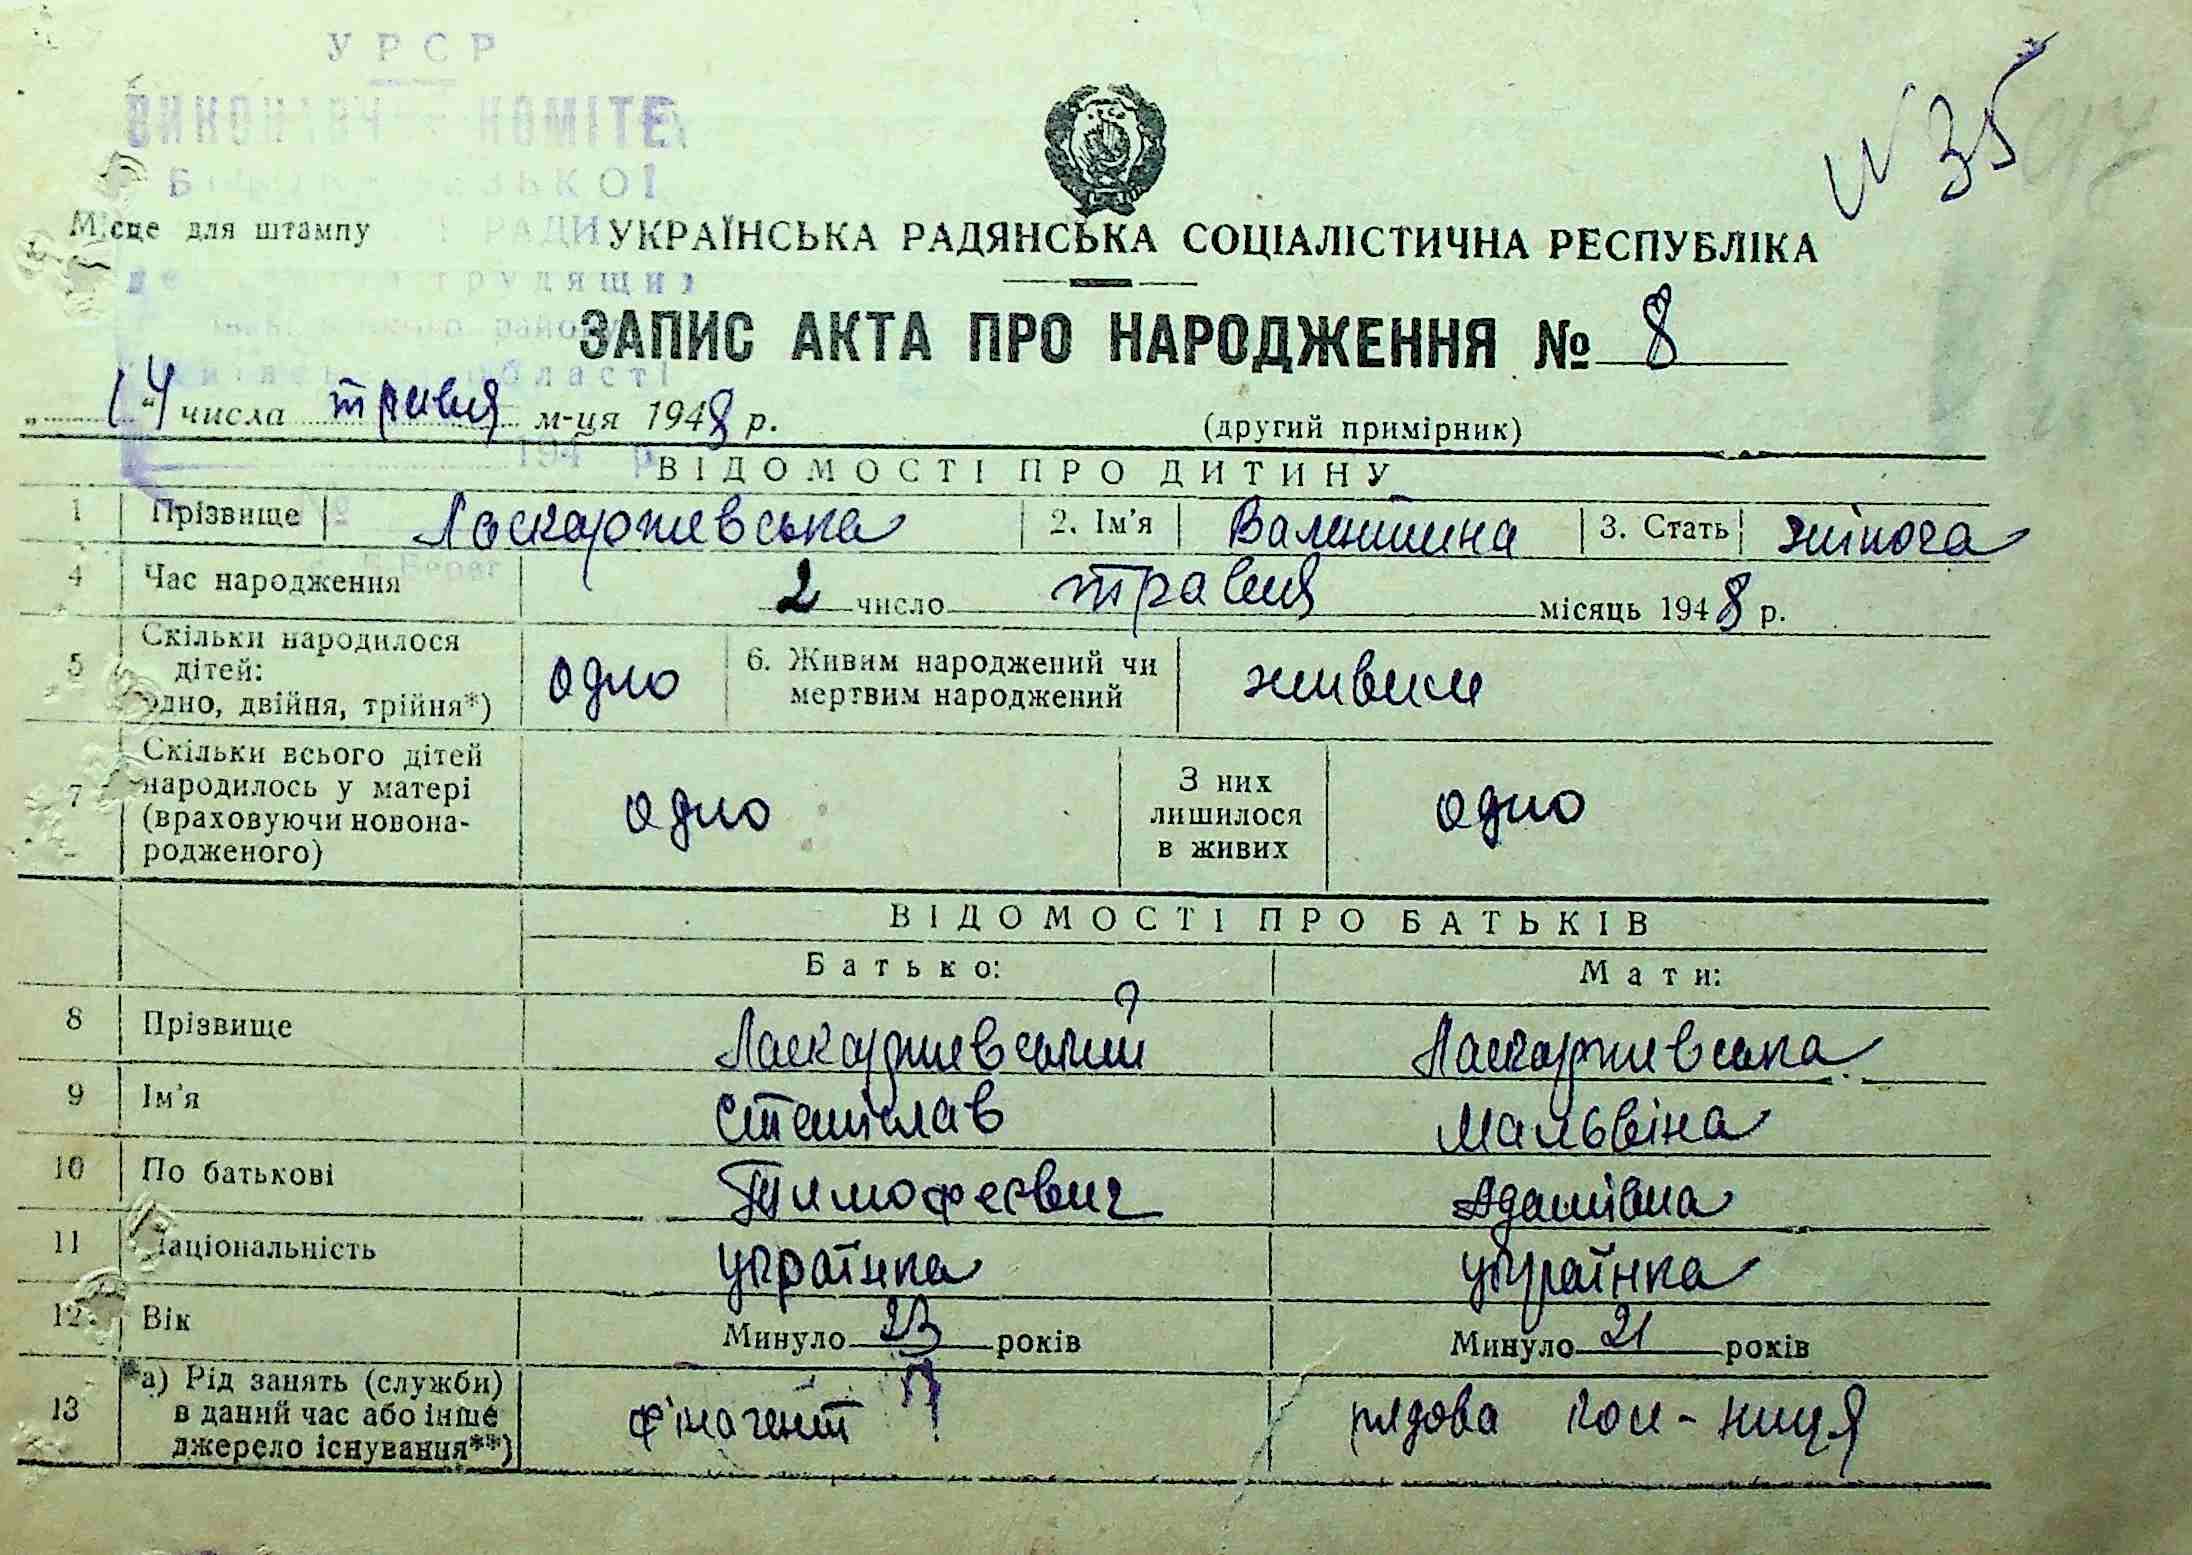 УРСР
КОМІТЕ
РАДИ
трудящих
області
№ 35
Місце для штампу
УКРАЇНСЬКА РАДЯНСЬКА СОЦІАЛІСТИЧНА РЕСПУБЛІКА
ЗАПИС АКТА ПРО НАРОДЖЕННЯ № 8
„14“ числа травня м-ця 1948 р.
(другий примірник)
194 р.
ВІДОМОСТІ ПРО ДИТИНУ
1 Прізвище Ласкаржевська 2. Ім'я Валентина 3. Стать жіноча
4 Час народження 2 число травня місяць 1948 р.
5 Скільки народилося дітей: одно, двійня, трійня*) одно 6. Живим народжений чи мертвим народжений живим
7 Скільки всього дітей народилось у матері (враховуючи новона-родженого) одно З них лишилося в живих одно
ВІДОМОСТІ ПРО БАТЬКІВ
Батько: Мати:
8 Прізвище Ласкаржевський Ласкаржевська
9 Ім'я Станіслав Мальвіна
10 По батькові Тимофеєвич Адамівна
11 Національність українка українка
12 Вік Минуло 23 років Минуло 21 років
13 а) Рід занять (служби) в даний час або інше джерело існування**) фінагент рядова кол-ниця